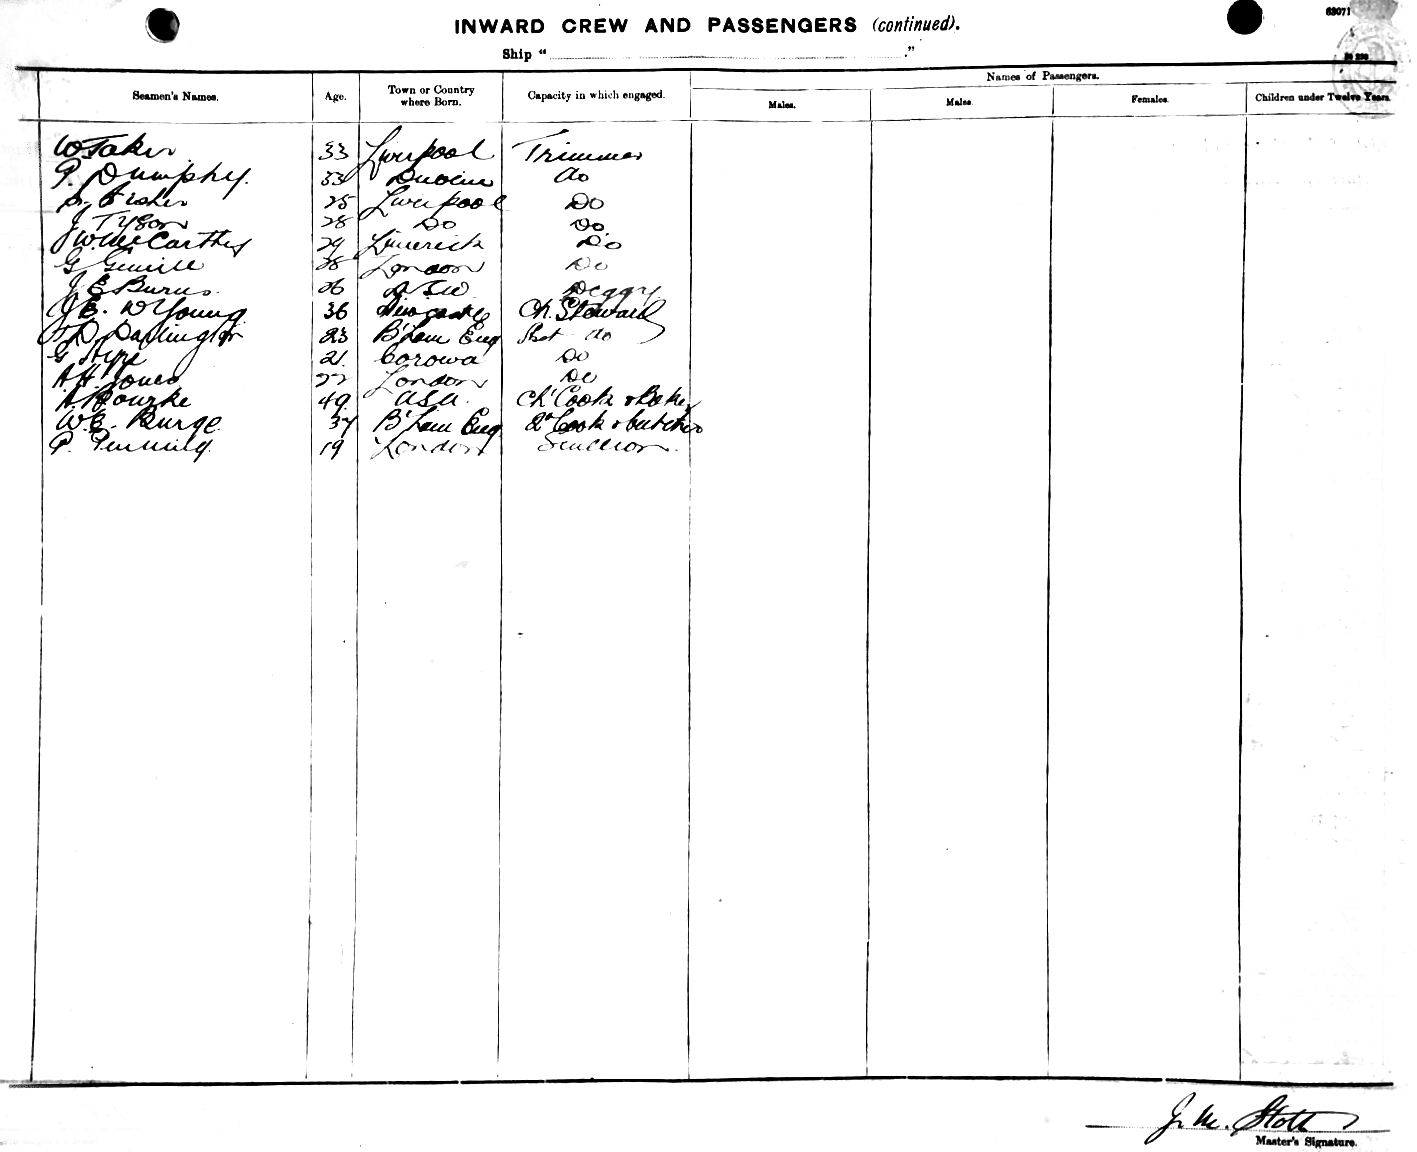 63071
INWARD CREW AND PASSENGERS (continued).
Ship " ."
Seamen's Names. Age. Town or Country where Born. Capacity in which engaged. Names of Passengers.
Males. Males. Females. Children under Twelve Years.
33 Liverpool Trimmer
P. Dumphy. 33 Dublin do
S. Fisher 25 Liverpool Do
J. Tyson 28 Do Do
J W McCarthy 29 Limerick Do
G 28 London Do
J E Burns 26 NSW Peggy
J E. D Young 36 Newcastle Ch. Steward
D Darlington 23 B'ham Eng do
G 21. Corowa Do
A. H. Jones 22 London Do
A Bourke 49 USA. Ch' Cook & Baker
W. E. Burge 37 B'ham Eng 2d Cook & butcher
P. 19 London Scullion.
J. M. Stott
Master's Signature.